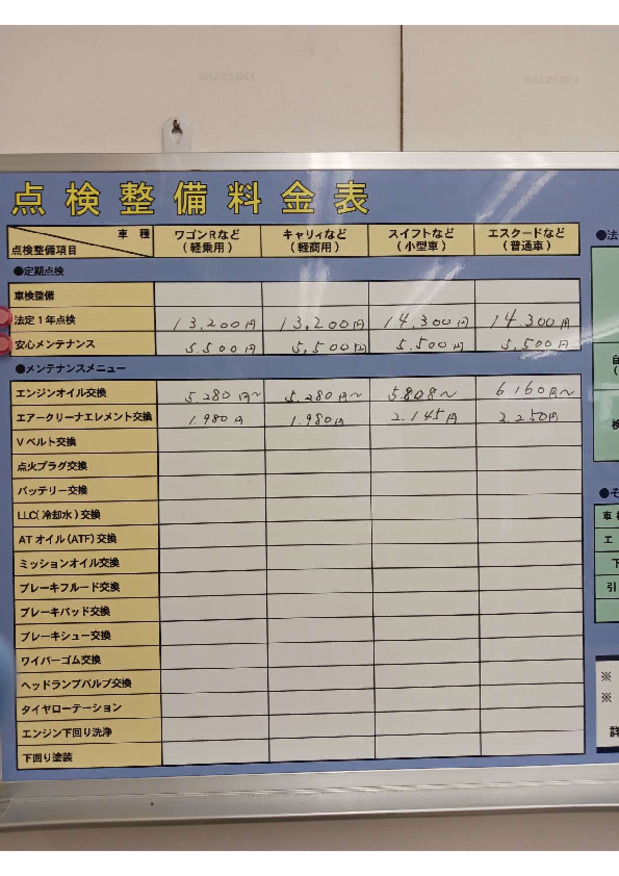 SUZUKI SUZUKI
点検整備料金表
車種 ワゴンRなど キャリイなど スイフトなど エスクードなど
点検整備項目 (軽乗用) (軽商用) (小型車) (普通車)
●定期点検
車検整備
法定1年点検 13,200円 13,200円 14,300円 14,300円
安心メンテナンス 5,500円 5,500円 5,500円 5,500円
●メンテナンスメニュー
エンジンオイル交換 5,280円~ 5,280円~ 5808~ 6160円~
エアークリーナエレメント交換 1,980円 1,980円 2,145円 2,250円
Vベルト交換
点火プラグ交換
バッテリー交換
LLC(冷却水)交換
ATオイル(ATF)交換
ミッションオイル交換
ブレーキフルード交換
ブレーキパッド交換
ブレーキシュー交換
ワイパーゴム交換
ヘッドランプバルブ交換
タイヤローテーション
エンジン下回り洗浄
下回り塗装
●法
自
(
検
●そ
車
エ
下
引
※
※
詳